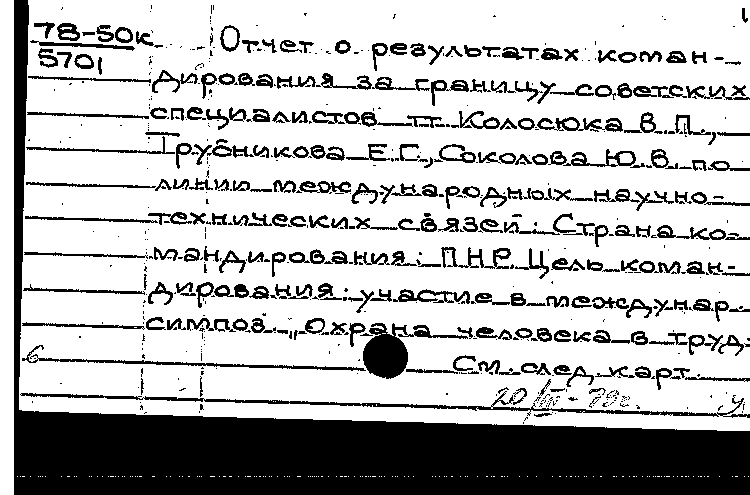 78-50к
5701
Отчет о результатах коман-
дирования за границу советских
специалистов тт Колосюка В.П.,
Трубникова Е.Г., Соколова Ю.В. по
линии международных научно-
технических связей. Страна ко-
мандирования: ПНР. Цель коман-
дирования: участие в междунар.
симпоз. „Охрана человека в труд-
См. след. карт.
6
20/III-79г.